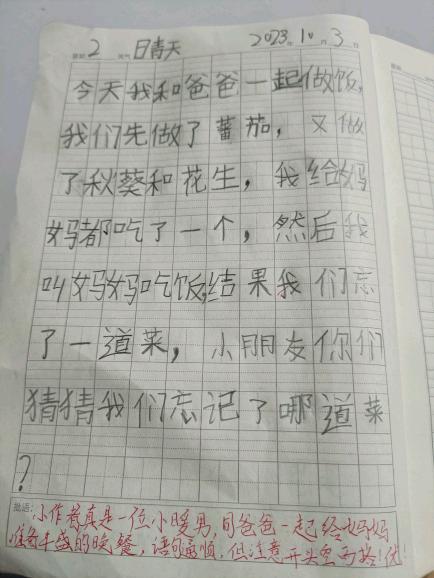 星期 2 天气 日青天 2023年10月3日
今天我和爸爸一起做饭,
我们先做了蕃茄，又做
了秋葵和花生，我给妈
妈都吃了一个，然后我
叫妈妈吃饭,结果我们忘
了一道菜，小朋友你们
猜猜我们忘记了哪道菜
?
批语: 小作者真是一位小暖男,同爸爸一起给妈妈
准备丰盛的晚餐,语句通顺,但注意开头空两格!优!